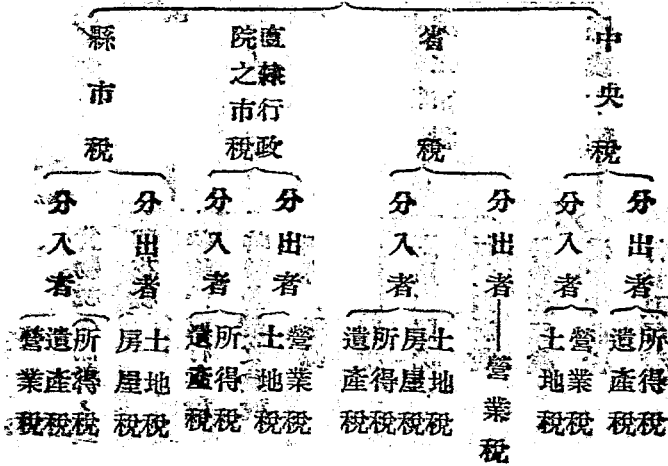 中央稅
分出者
所得稅
遺產稅
分入者
營業稅
土地稅
省稅
分出者
營業稅
分入者
土地稅
房屋稅
所得稅
遺產稅
直隸行政
院之市稅
分出者
營業稅
土地稅
分入者
所得稅
遺產稅
縣市稅
分出者
土地稅
房屋稅
分入者
所得稅
遺產稅
營業稅